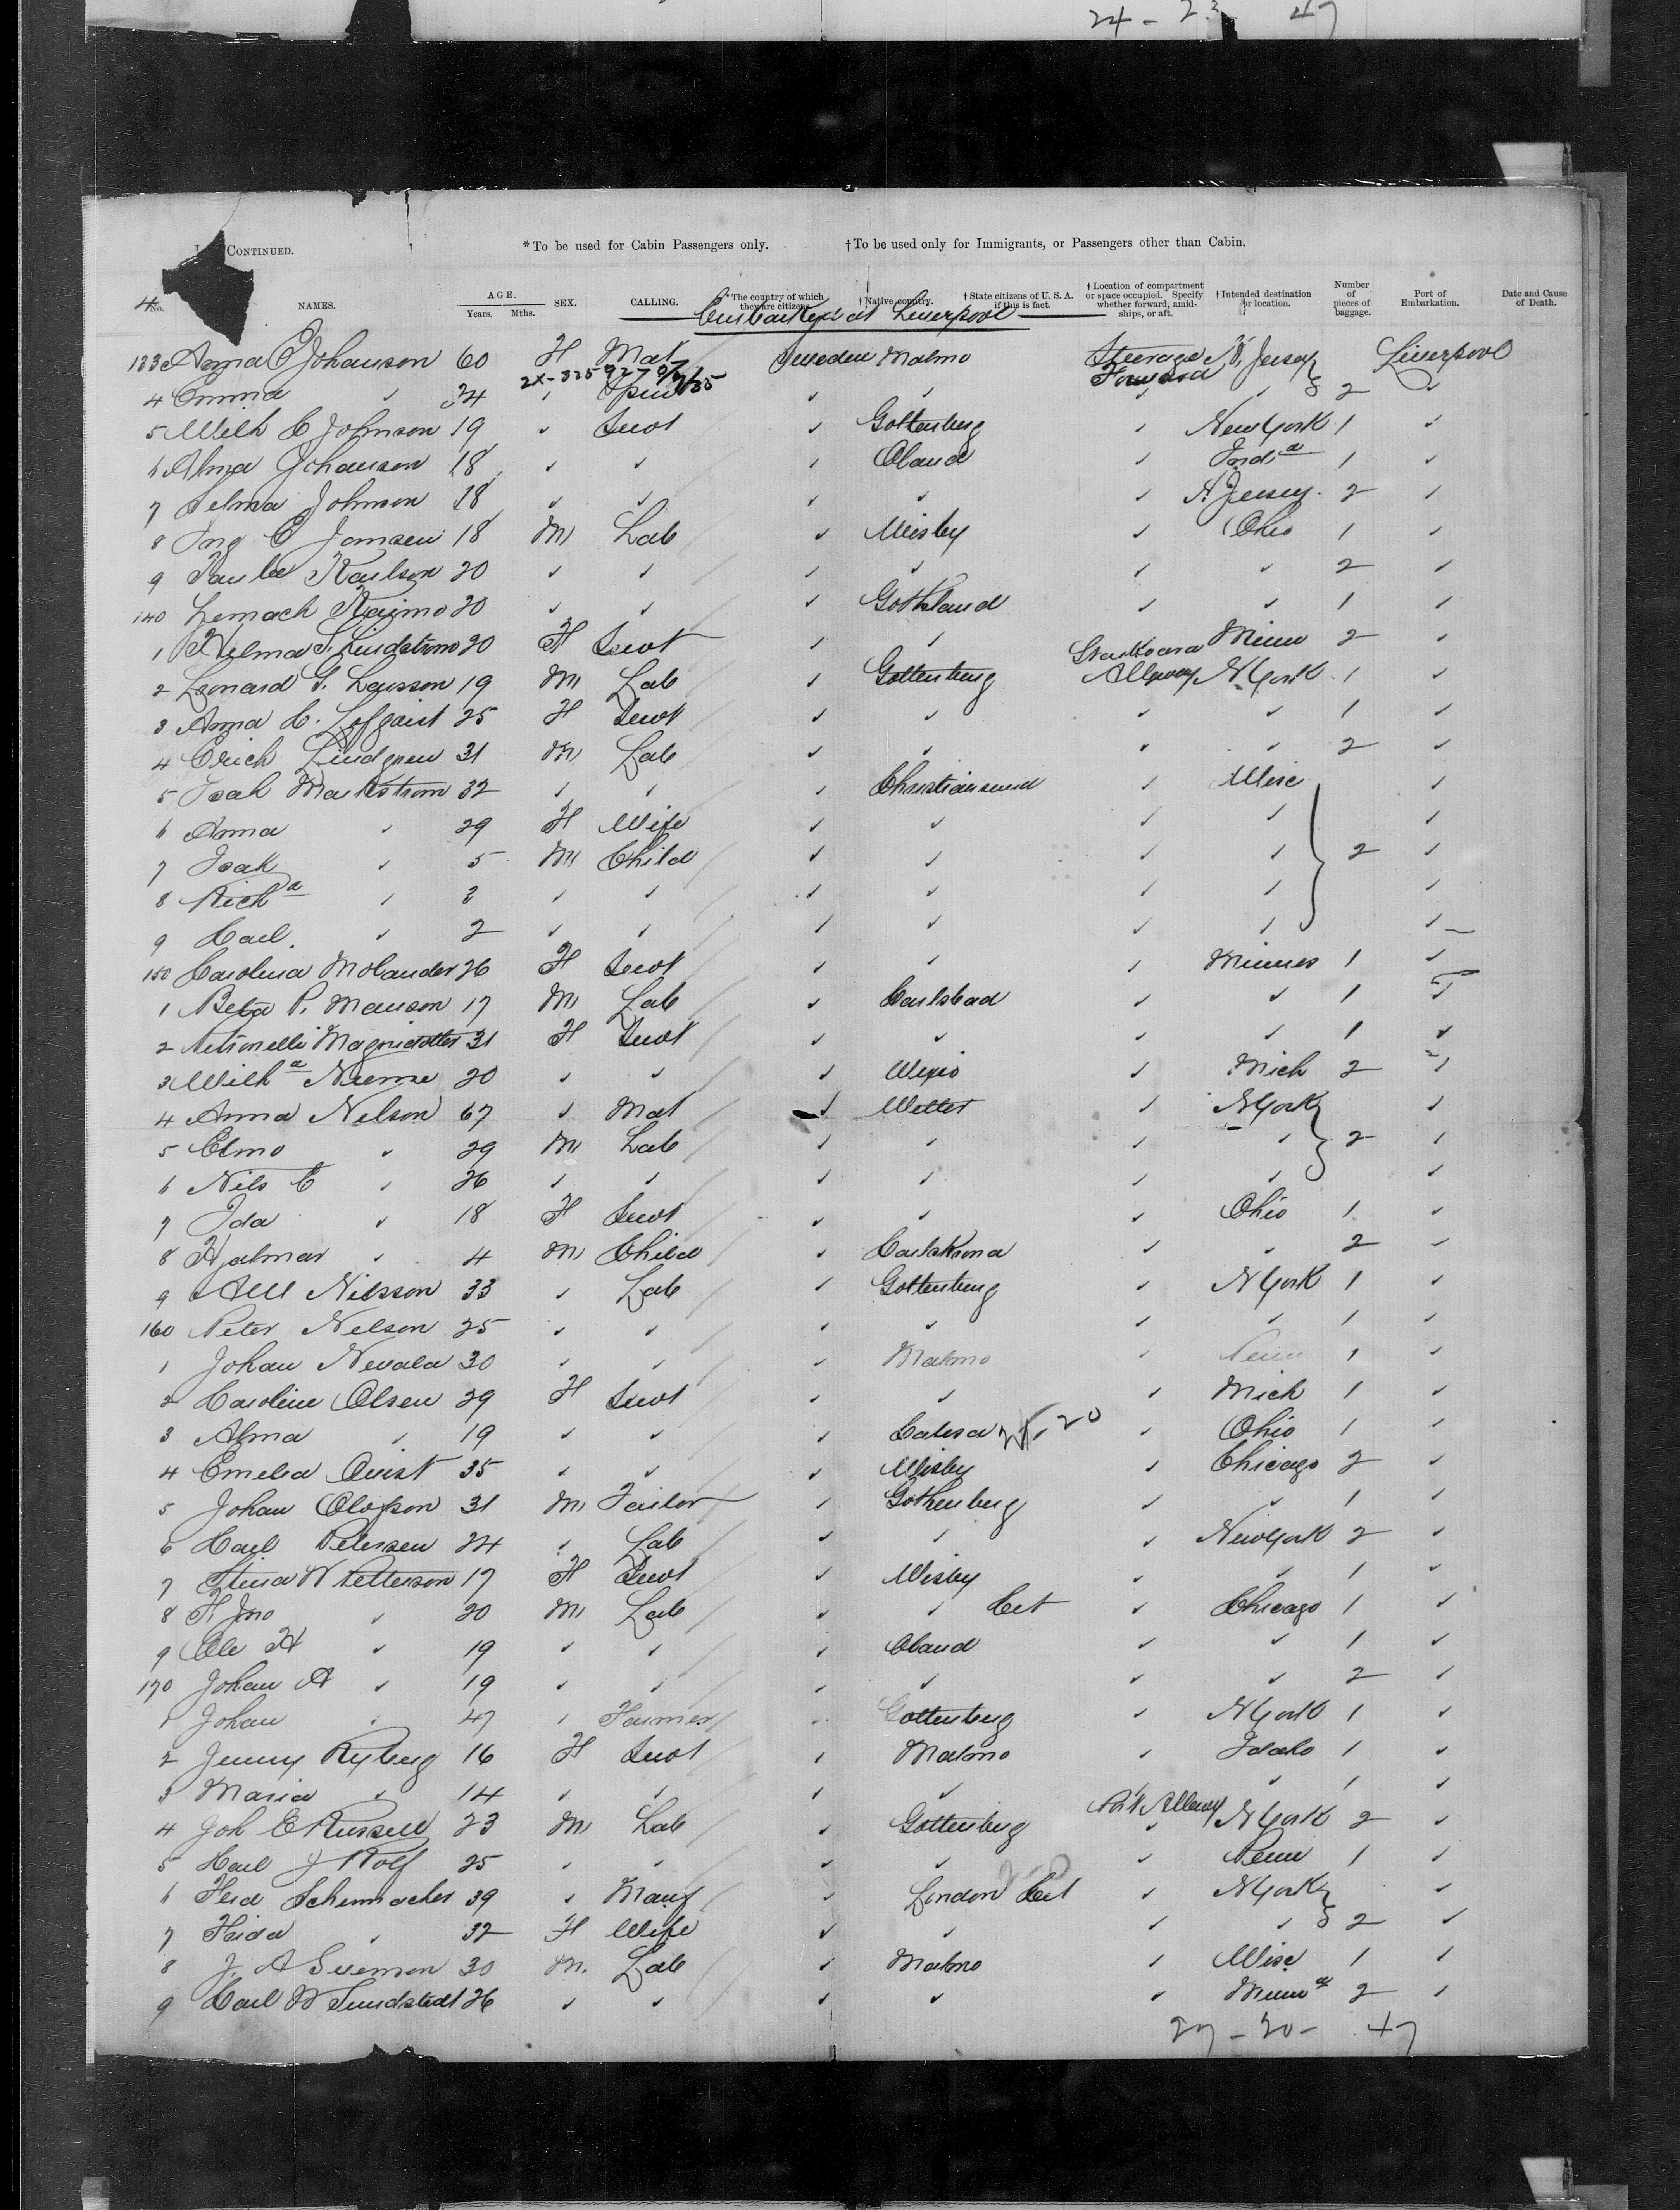 24 - 23 47
CONTINUED. *To be used for Cabin Passengers only. †To be used only for Immigrants, or Passengers other than Cabin.
4 No. NAMES. AGE. Years. Mths. SEX. CALLING. *The country of which they are citizens. †Native country. †State citizens of U. S. A. if this is fact. †Location of compartment or space occupied. Specify whether forward, amidships, or aft. †Intended destination or location. Number of pieces of baggage. Port of Embarkation. Date and Cause of Death.
Embarked at Liverpool
133 Anna C Johanson 60 F Mat Sweden Malmo Steerage Forward N. Jersey Liverpool
4 Emma ✓ 24 ✓ Spin ✓ ✓ ✓ ✓ 2 ✓
5 Wilh C Johnson 19 ✓ Servt ✓ Gottenburg ✓ New York 1 ✓
6 Alma Johanson 18 ✓ ✓ ✓ Oland ✓ Inda 1 ✓
7 Selma Johnson 18 ✓ ✓ ✓ ✓ ✓ N. Jersey. 2 ✓
8 Ing C Jonsen 18 M Lab ✓ Wisby ✓ Ohio 1 ✓
9 Karlson 20 ✓ ✓ ✓ ✓ ✓ ✓ 2 ✓
140 20 ✓ ✓ ✓ Gothland ✓ ✓ 1 ✓
1 Lindstrom 20 F Servt ✓ ✓ Minn 2 ✓
2 Leonard G. Larsson 19 M Lab ✓ Gottenburg Alleyway N York 1 ✓
3 Anna C. Lofquist 25 F Servt ✓ ✓ ✓ ✓ 1 ✓
4 Erich Lindgren 31 M Lab ✓ ✓ ✓ ✓ 2 ✓
5 Isak Markstrom 32 ✓ ✓ ✓ Christiansund ✓ Wisc ✓
6 Anna ✓ 29 F Wife ✓ ✓ ✓ ✓ ✓
7 Isak ✓ 5 M Child ✓ ✓ ✓ ✓ 2 ✓
8 Richa ✓ 3 ✓ ✓ ✓ ✓ ✓ ✓ ✓
9 Carl ✓ 2 ✓ ✓ ✓ ✓ ✓ ✓ ✓
150 Carolina Molander 26 F Servt ✓ ✓ ✓ Minnes 1 ✓
1 P. Manson 17 M Lab ✓ Carlstad ✓ ✓ 1 ✓
2 Magnidotter 31 F Servt ✓ ✓ ✓ ✓ 1 ✓
3 Wilha 20 ✓ ✓ ✓ Wexio ✓ Mich 2 ✓
4 Anna Nelson 67 ✓ Mat ✓ ✓ N York ✓
5 Elmo ✓ 29 M Lab ✓ ✓ ✓ ✓ 2 ✓
6 Nils C ✓ 26 ✓ ✓ ✓ ✓ ✓ ✓ ✓
7 Ida ✓ 18 F Servt ✓ ✓ ✓ Ohio 1 ✓
8 Hjalmar ✓ 4 M Child ✓ Carlskrona ✓ ✓ 2 ✓
9 Nilsson 33 ✓ Lab ✓ Gottenburg ✓ N York 1 ✓
160 Peter Nelson 25 ✓ ✓ ✓ ✓ ✓ ✓ 1 ✓
1 Johan Nevala 30 ✓ ✓ ✓ Malmo ✓ Penn 1 ✓
2 Caroline Olsen 29 F Servt ✓ ✓ ✓ Mich 1 ✓
3 Alma ✓ 19 ✓ ✓ ✓ ✓ Ohio 1 ✓
4 Emelia Quist 35 ✓ ✓ ✓ Wisby ✓ Chicago 2 ✓
5 Johan Olofson 31 M Tailor ✓ Gothenburg ✓ ✓ 1 ✓
6 Carl Petersen 24 ✓ Lab ✓ ✓ ✓ New York 2 ✓
7 Stina W Petterson 17 F Servt ✓ Wisby ✓ ✓ 1 ✓
8 F. Jno ✓ 20 M Lab ✓ ✓ Cet ✓ Chicago 1 ✓
9 Ole H ✓ 19 ✓ ✓ ✓ Oland ✓ ✓ 1 ✓
170 Johan A ✓ 19 ✓ ✓ ✓ ✓ ✓ ✓ 2 ✓
1 Johan ✓ 47 ✓ Farmer ✓ Gottenburg ✓ N York 1 ✓
2 Jenny Ryberg 16 F Servt ✓ Malmo ✓ Idaho 1 ✓
3 Maria ✓ 14 ✓ ✓ ✓ ✓ ✓ 1 ✓
4 Joh E Russell 23 M Lab ✓ Gottenburg Port Alleway N York 2 ✓
5 Carl J Rolf 25 ✓ ✓ ✓ ✓ ✓ Penn 1 ✓
6 Schumacher 39 ✓ Manf ✓ London Cet ✓ N York ✓
7 Frida ✓ 32 F Wife ✓ ✓ ✓ ✓ 2 ✓
8 J. A Svenson 30 M. Lab ✓ Malmo ✓ Wisc 1 ✓
9 Carl W Sundstedt 26 ✓ ✓ ✓ ✓ ✓ 2 ✓
27 - 20 - 47